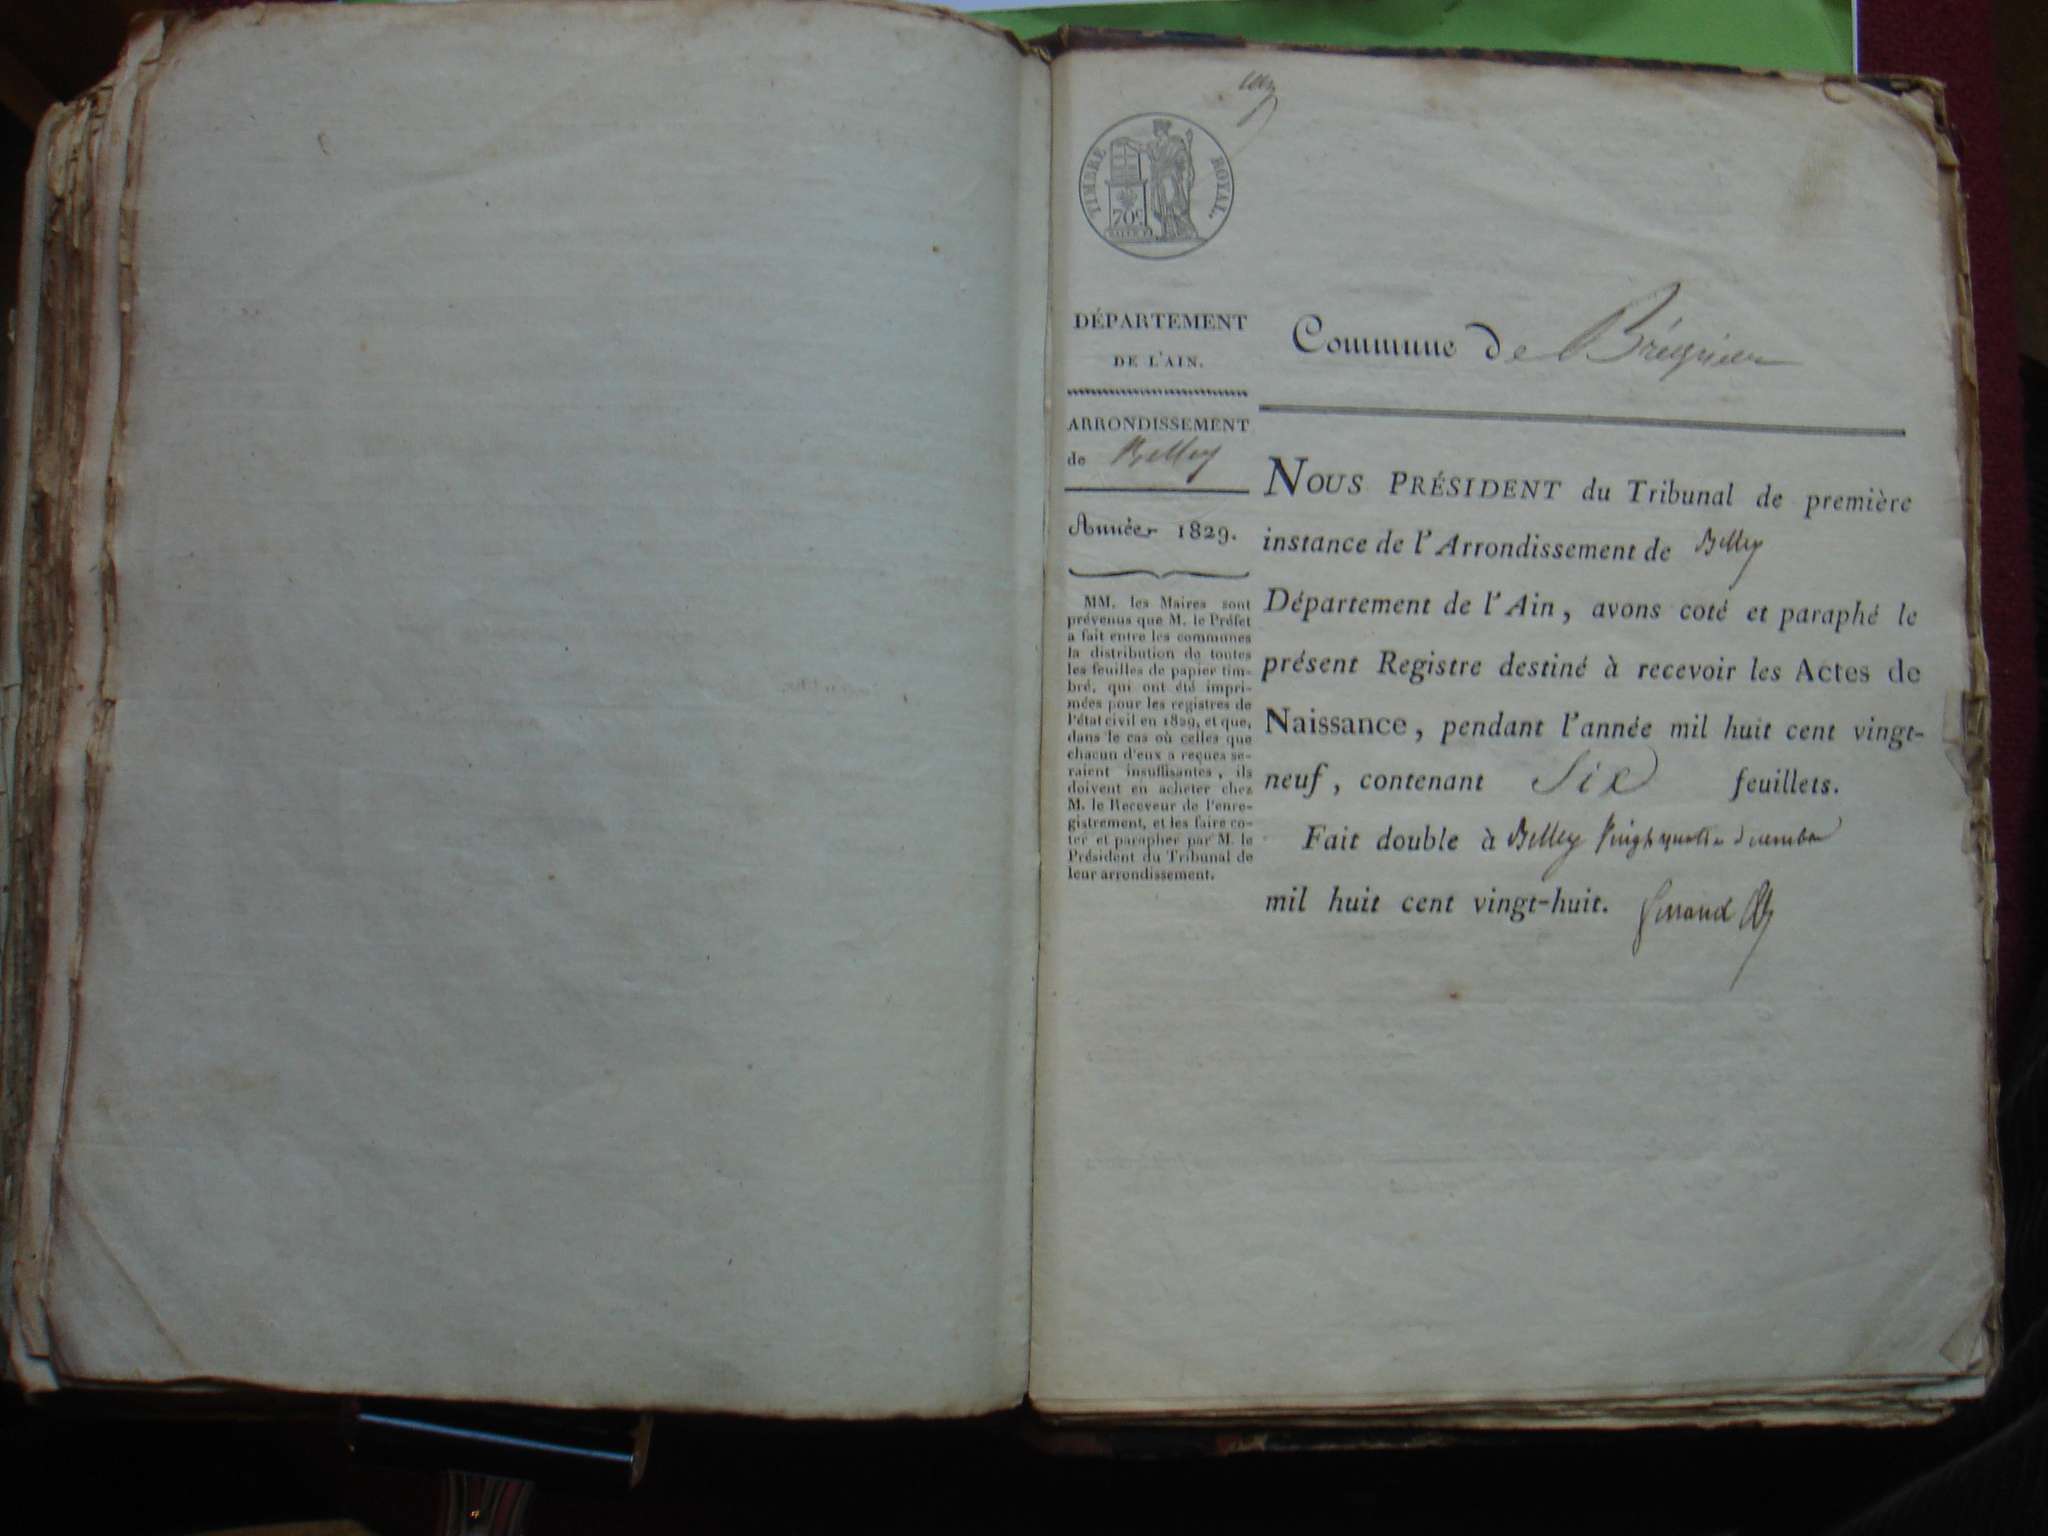 TIMBRE ROYAL.
70c
DÉPARTEMENT
DE L'AIN.
ARRONDISSEMENT
de Belley
Année 1829.
MM. les Maires sont
prévenus que M. le Préfet
a fait entre les communes
la distribution de toutes
les feuilles de papier tim-
bré, qui ont été impri-
mées pour les registres de
l'état civil en 1829, et que,
dans le cas où celles que
chacun d'eux a reçues se-
raient insuffisantes, ils
doivent en acheter chez
M. le Receveur de l'enre-
gistrement, et les faire co-
ter et parapher par M. le
Président du Tribunal de
leur arrondissement.
Commune de Brégnier
NOUS PRÉSIDENT du Tribunal de première
instance de l'Arrondissement de Belley
Département de l'Ain, avons coté et paraphé le
présent Registre destiné à recevoir les Actes de
Naissance, pendant l'année mil huit cent vingt-
neuf, contenant Six feuillets.
Fait double à Belley vingt quatre décembre
mil huit cent vingt-huit.